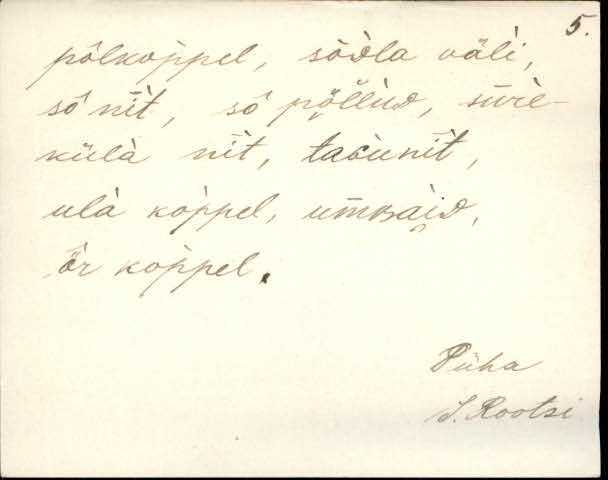 5.
põlkoppel, sõòla väli,
sō nīt, sō põllud, sūre-
külà nīt, tasunīt,
ula koppel, umbaid,
ǟr koppel.
Püha
S. Rootsi